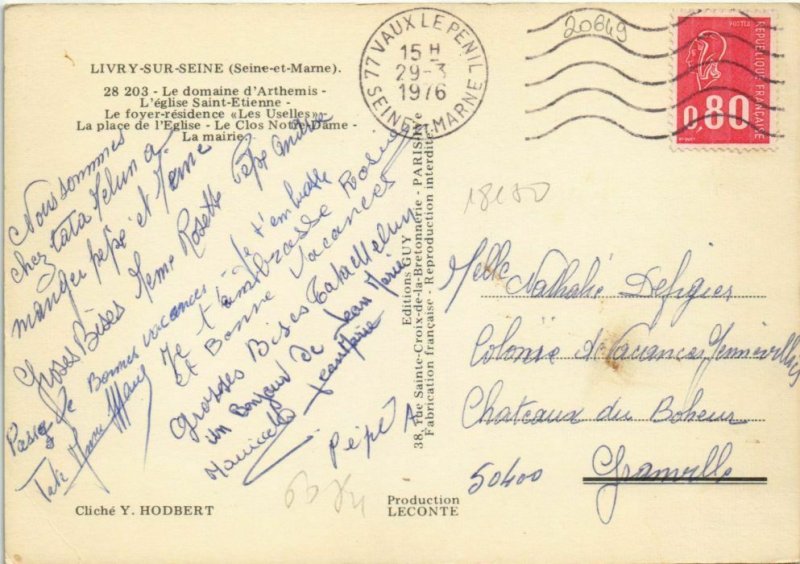 LIVRY-SUR-SEINE (Seine-et-Marne).
28 203 - Le domaine d'Arthemis -
L'église Saint-Etienne -
Le foyer-résidence «Les Uselles» -
La place de l'Eglise - Le Clos Notre-Dame -
La mairie.
77 VAUX LE PENIL
15 H
29-3
1976
SEINE ET MARNE
20849
POSTES
REPUBLIQUE FRANÇAISE
0,80
Nous sommes
chez tata Melun a
manger pépé et Meme
Groses Bises Meme Rosette Pépé André
Passez de Bonnes vacances - Je t'embrasse
Tata
Je t'embrasse
et Bonne Vacances
Grosses Bises Tata Melun
un Bonjour de Jean Marie
Mauricette Jean Marie
Pépé A
Editions GUY
38, rue Sainte-Croix-de-la-Bretonnerie - PARIS
Fabrication française - Reproduction interdite
18150
Melle Nathalie Defigier
Colonie de Vacances Gennevilliers
Chateaux du Boheur
50400 Granville
Cliché Y. HODBERT
Production
LECONTE